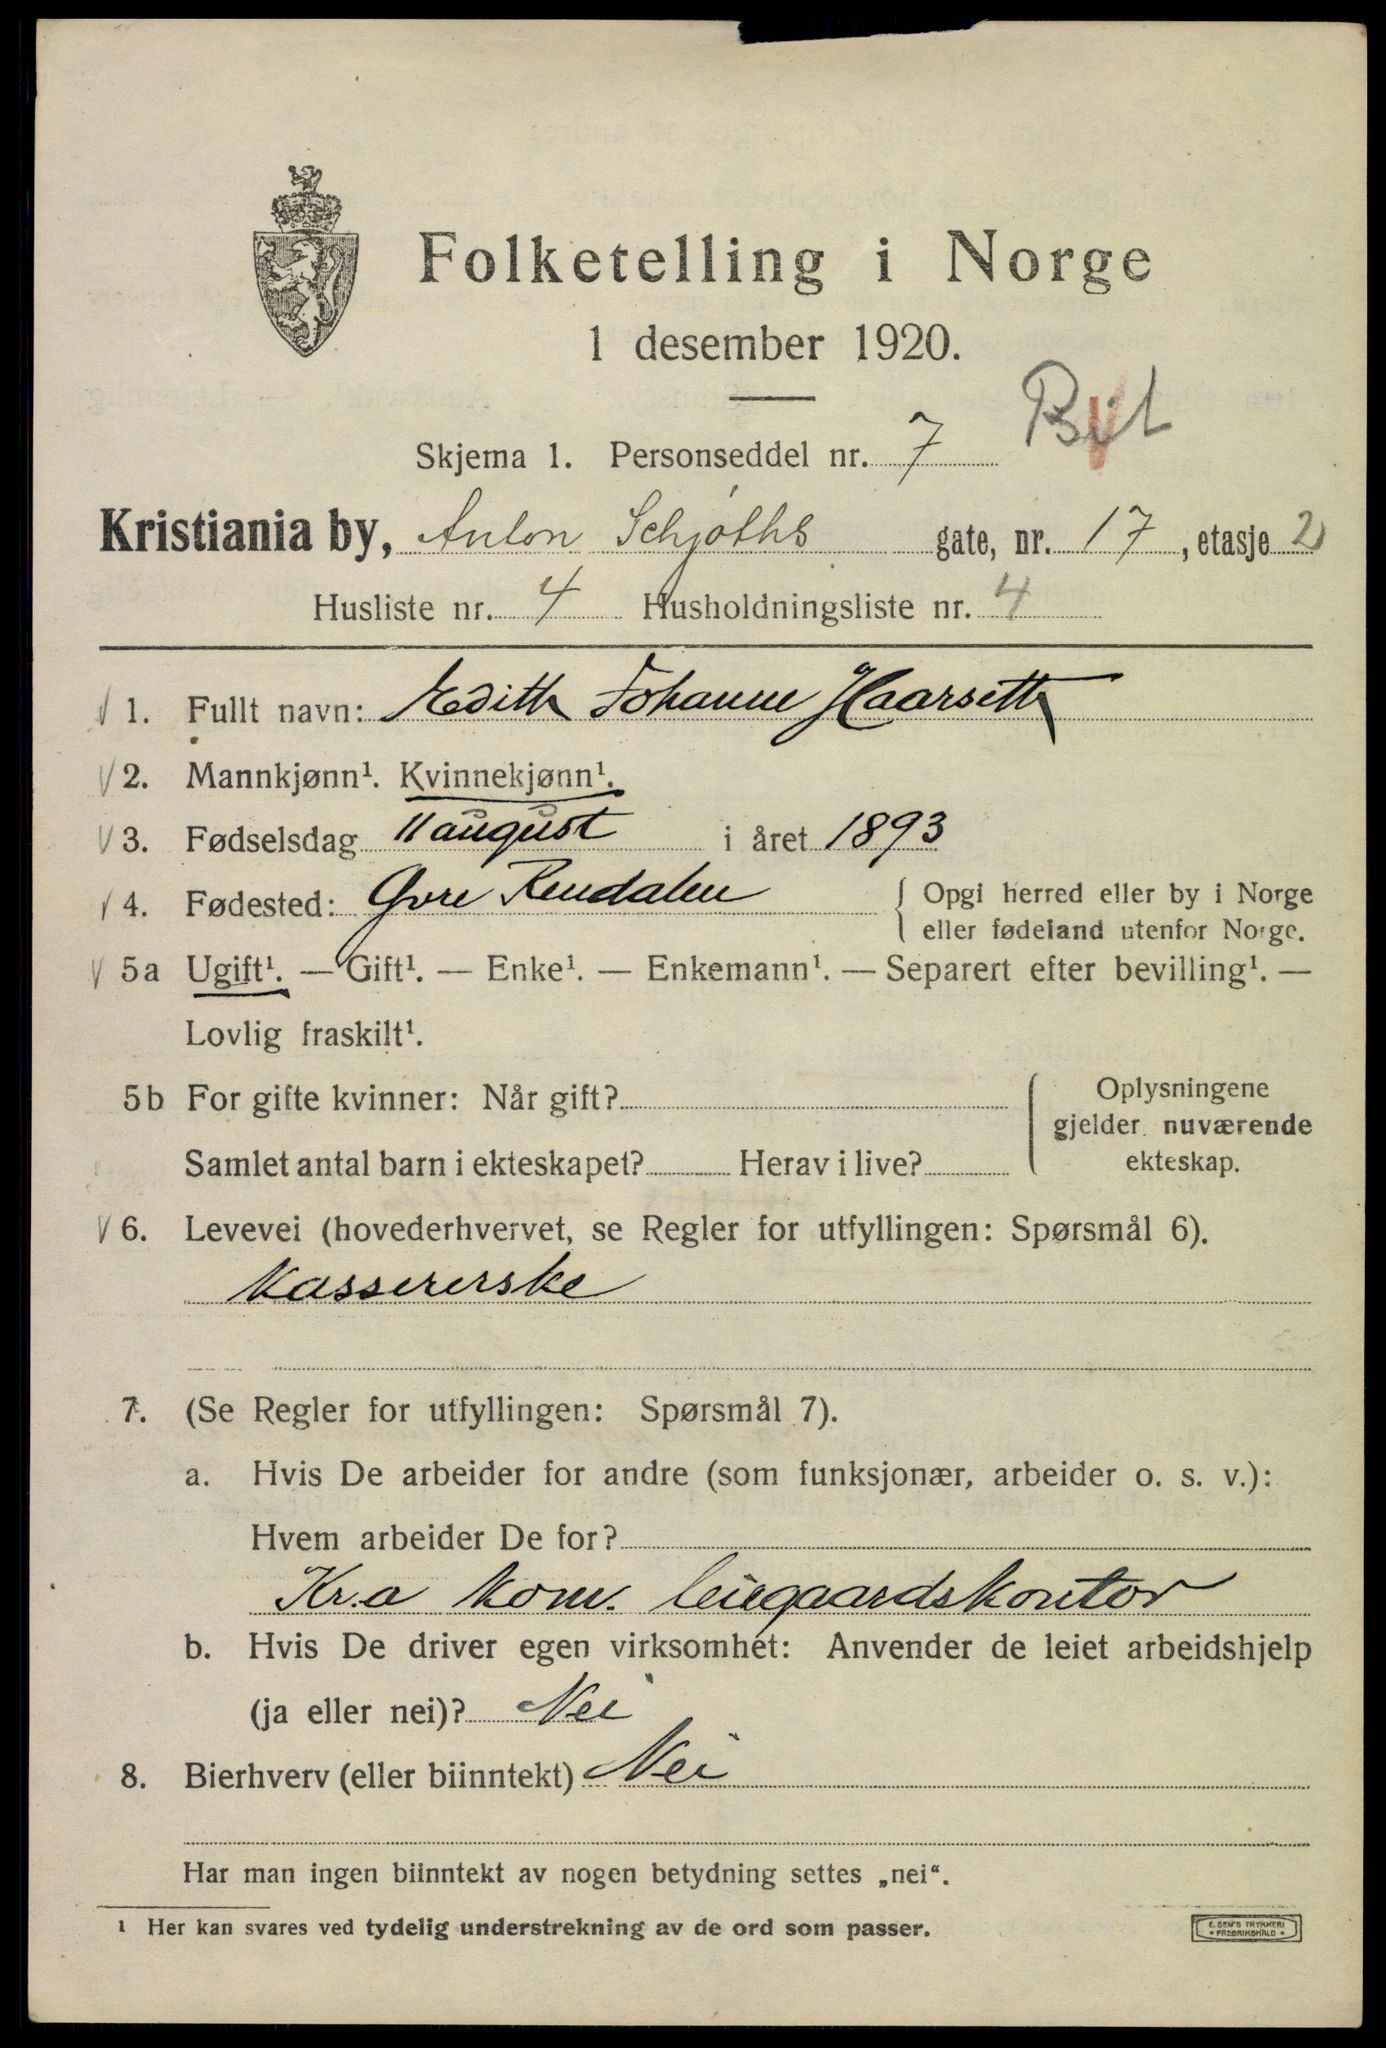 Folketelling i Norge
1 desember 1920.
Skjema 1. Personseddel nr. 7
Kristiania by, Anton Schjøths gate, nr. 17, etasje 2
Husliste nr. 4 Husholdningsliste nr. 4
1. Fullt navn: Edith Johanne Haarseth
2. Mannkjønn¹. Kvinnekjønn¹.
3. Fødselsdag 11 august i året 1893
4. Fødested: Øvre Rendalen { Opgi herred eller by i Norge
eller fødeland utenfor Norge.
5a Ugift¹. — Gift¹. — Enke¹. — Enkemann¹. — Separert efter bevilling¹. —
Lovlig fraskilt¹.
5b For gifte kvinner: Når gift? { Oplysningene
gjelder nuværende
Samlet antal barn i ekteskapet? Herav i live? ekteskap.
6. Levevei (hovederhvervet, se Regler for utfyllingen: Spørsmål 6).
Kassererske
7. (Se Regler for utfyllingen: Spørsmål 7).
a. Hvis De arbeider for andre (som funksjonær, arbeider o. s. v.):
Hvem arbeider De for?
Kr.a kom. leiegaardskontor
b. Hvis De driver egen virksomhet: Anvender de leiet arbeidshjelp
(ja eller nei)? Nei
8. Bierhverv (eller biinntekt) Nei
Har man ingen biinntekt av nogen betydning settes „nei“.
¹ Her kan svares ved tydelig understrekning av de ord som passer.
E. SEM'S TRYKKERI
FREDRIKSHALD